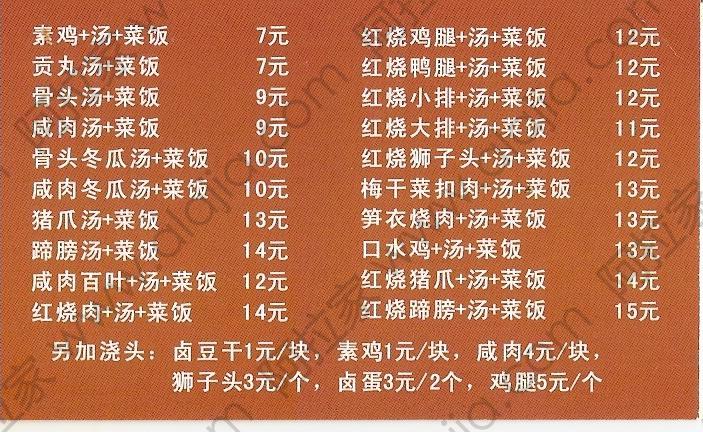 素鸡+汤+菜饭 7元
贡丸汤+菜饭 7元
骨头汤+菜饭 9元
咸肉汤+菜饭 9元
骨头冬瓜汤+菜饭 10元
咸肉冬瓜汤+菜饭 10元
猪爪汤+菜饭 13元
蹄膀汤+菜饭 14元
咸肉百叶+汤+菜饭 12元
红烧肉+汤+菜饭 14元
红烧鸡腿+汤+菜饭 12元
红烧鸭腿+汤+菜饭 12元
红烧小排+汤+菜饭 12元
红烧大排+汤+菜饭 11元
红烧狮子头+汤+菜饭 12元
梅干菜扣肉+汤+菜饭 13元
笋衣烧肉+汤+菜饭 13元
口水鸡+汤+菜饭 13元
红烧猪爪+汤+菜饭 14元
红烧蹄膀+汤+菜饭 15元
另加浇头：卤豆干1元/块，素鸡1元/块，咸肉4元/块，
狮子头3元/个，卤蛋3元/2个，鸡腿5元/个
阿拉家 www.alajia.com